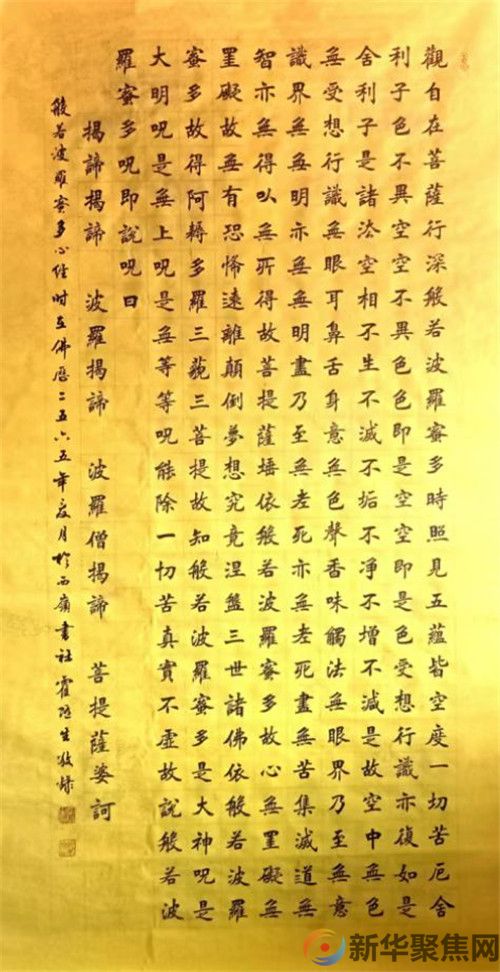 觀自在菩薩行深般若波羅蜜多時照見五蘊皆空度一切苦厄舍
利子色不異空空不異色色即是空空即是色受想行識亦復如是
舍利子是諸法空相不生不滅不垢不凈不增不減是故空中無色
無受想行識無眼耳鼻舌身意無色聲香味觸法無眼界乃至無意
識界無無明亦無無明盡乃至無老死亦無老死盡無苦集滅道無
智亦無得以無所得故菩提薩埵依般若波羅蜜多故心無罣礙無
罣礙故無有恐怖遠離顛倒夢想究竟涅盤三世諸佛依般若波羅
蜜多故得阿耨多羅三藐三菩提故知般若波羅蜜多是大神呪是
大明呪是無上呪是無等等呪能除一切苦真實不虛故說般若波
羅蜜多呪即說呪曰
揭諦揭諦 波羅揭諦 波羅僧揭諦 菩提薩婆訶
般若波羅蜜多心經時在佛歷二五六五年夏月於西嶺書社霍生敬錄
新华聚焦网